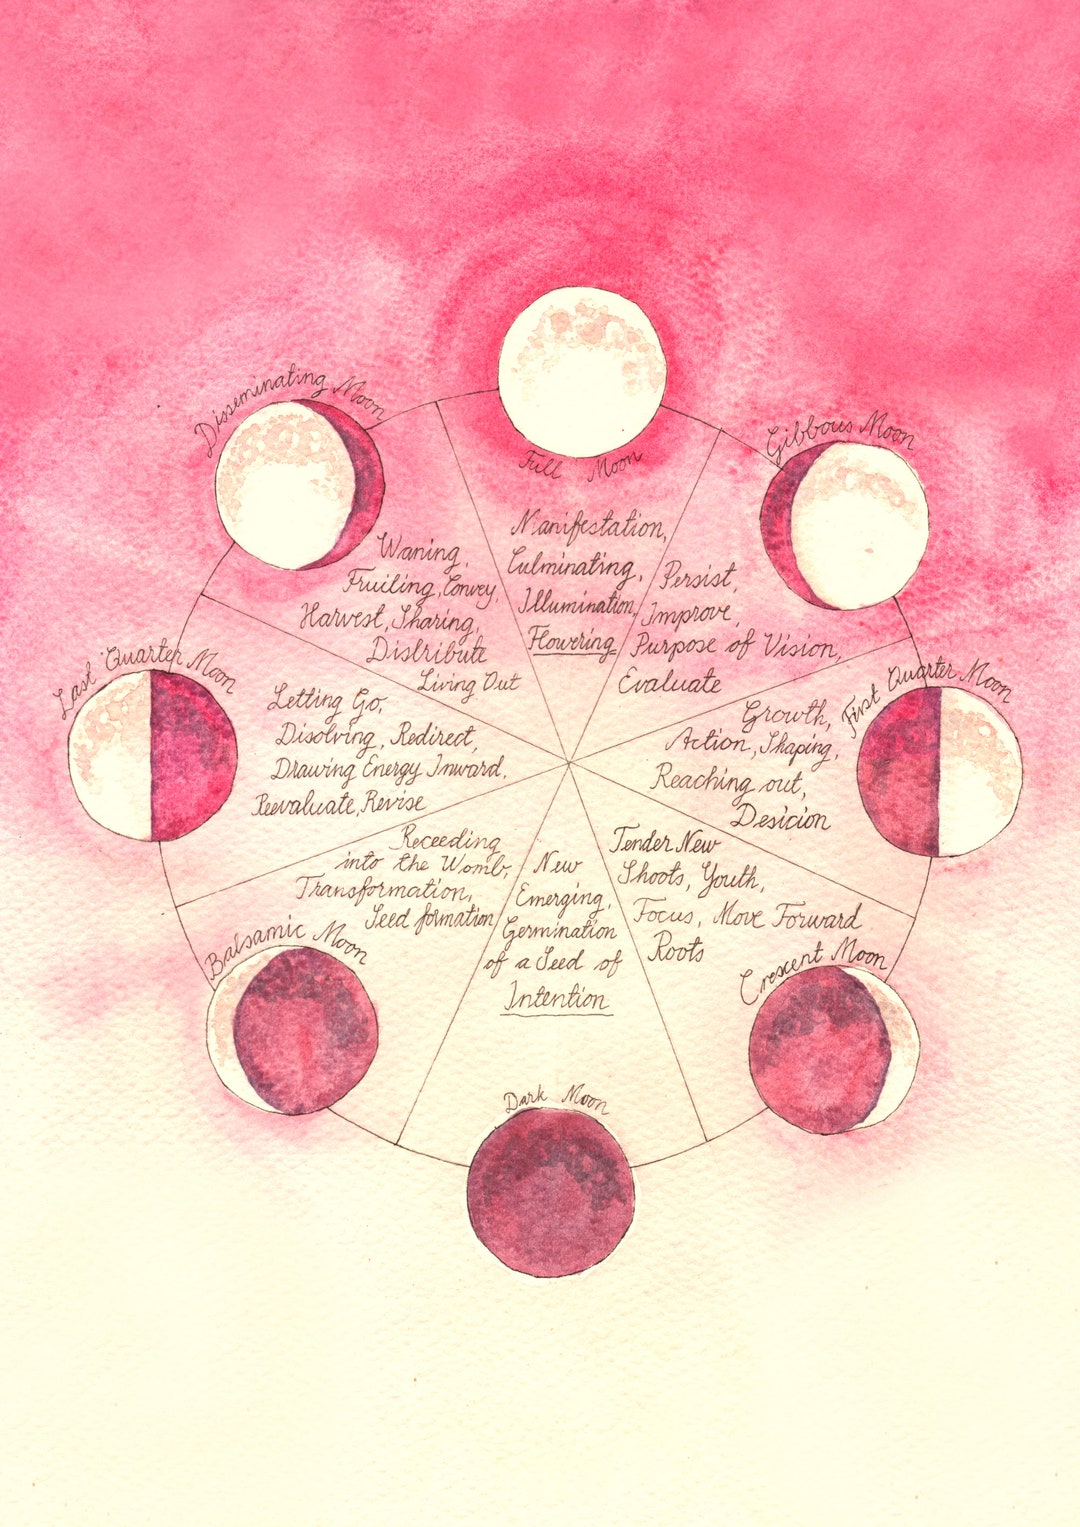 Full Moon
Manifestation,
Culminating,
Illumination,
Flowering
Gibbous Moon
Persist,
Improve,
Purpose of Vision,
Evaluate
First Quarter Moon
Growth,
Action, Shaping,
Reaching out,
Desicion
Crescent Moon
Tender New
Shoots, Youth,
Focus, Move Forward
Roots
Dark Moon
New
Emerging,
Germination
of a Seed of
Intention
Balsamic Moon
Receeding
into the Womb,
Transformation,
Seed formation
Last Quarter Moon
Letting Go,
Disolving, Redirect,
Drawing Energy Inward,
Reevaluate, Revise
Disseminating Moon
Waning,
Fruiling, Convey,
Harvest, Sharing,
Distribute
Living Out